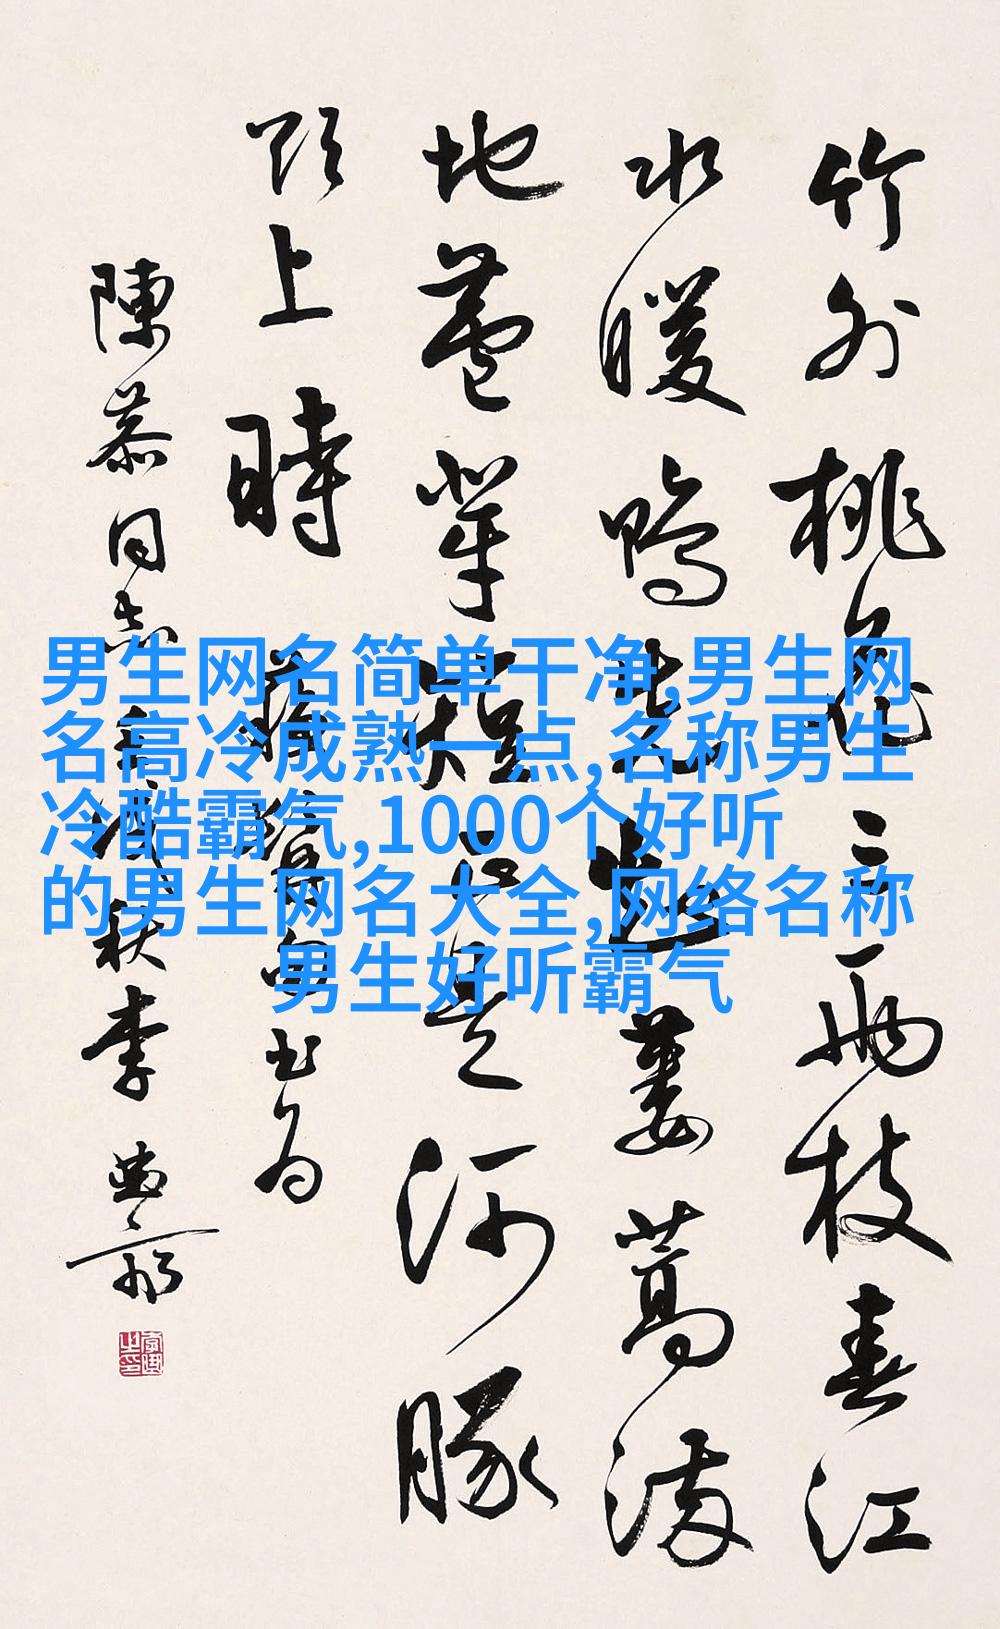 竹外桃花三兩枝春江
水暖鴨先知蔞蒿滿
地蘆芽短正是河豚
欲上時 句书为
陳恭同志 秋李
男生网名简单干净,男生网
名高冷成熟一点,名称男生
冷酷霸气,1000个好听
的男生网名大全,网络名称
男生好听霸气